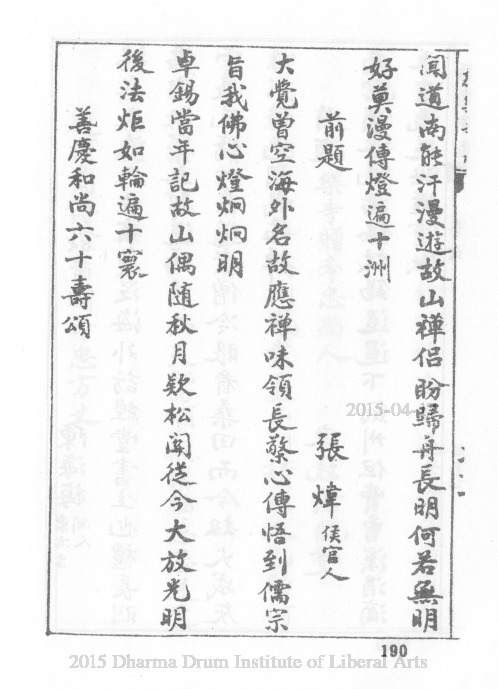 聞道尚能汗漫遊故山禪侶盼歸舟長明何若無明
好莫漫傳燈遍十洲
前題
張煒侯官人
大覺曾空海外名故應禪味領長檠心傳悟到儒宗
旨我佛心燈炯炯明
卓錫當年記故山偶隨秋月欵松關從今大放光明
後法炬如輪遍十寰
善慶和尚六十壽頌
2015-04
190
2015 Dharma Drum Institute of Liberal Arts